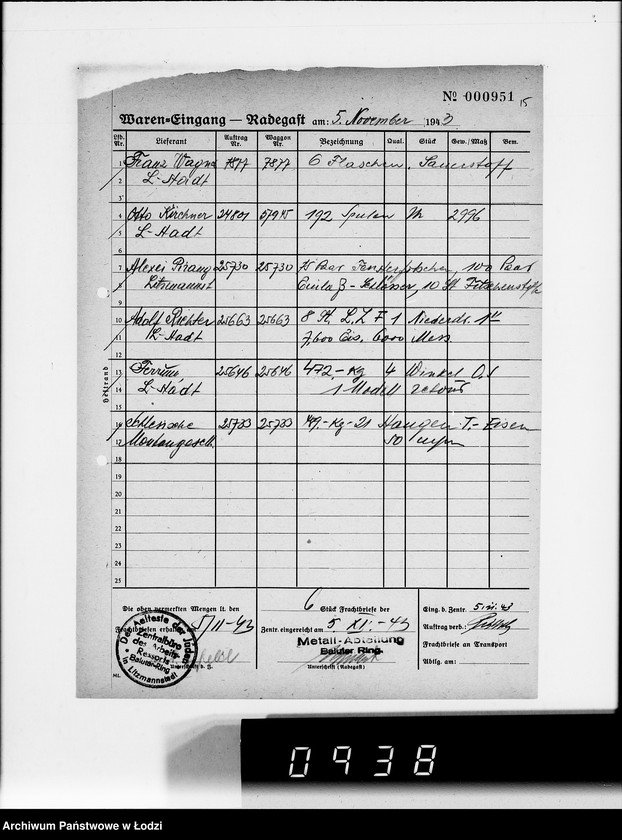 № 000951 15
Waren-Eingang — Radegast am: 5. November 1943
Lfd. Nr. Lieferant Auftrag Nr. Waggon Nr. Bezeichnung Qual. Stück Gew./Maß Bem.
1 Franz Wagner 7877 7877 6 Flaschen, Sauerstoff
2 L-Stadt
3
4 Otto Kirchner 24801 57915 192 Spulen 2996
5 L-Stadt
6
7 Alexei 25730 25730 15 Paar 100 Paar
8 Litzmannst 10 St.
9
10 Adolf Richter 25663 25663 8 St. L.Z.F 1 Niederdr. 1"
11 L-Stadt 7,600 Eis. 6000 Mess
12
13 Ferrum 25646 25646 472,- Kg 4 Winkel
14 L-Stadt 1 Modell retour
15
16 Schlesische 25733 25733 149,- Kg - 21 T.- Eisen
17 Montangesell. 50
18
19
20
21
22
23
24
25
Bestrand
Die oben vermerkten Mengen lt. den
Frachtbriefen erhalten am 5/11-43
6 Stück Frachtbriefe der
Zentr. eingereicht am 5. XI.-43
Metall-Abteilung
Baluter Ring.
Unterschrift (Radegast)
Eing. b. Zentr. 5.XI.43
Auftrag verb.:
Frachtbriefe an Transport
Abtlg. am:
Der Aelteste der Juden
in Litzmannstadt
Zentralbüro
der Arbeits-
Ressorts
Baluter-Ring
Unterschrift d. G.
ML.
0938
Archiwum Państwowe w Łodzi